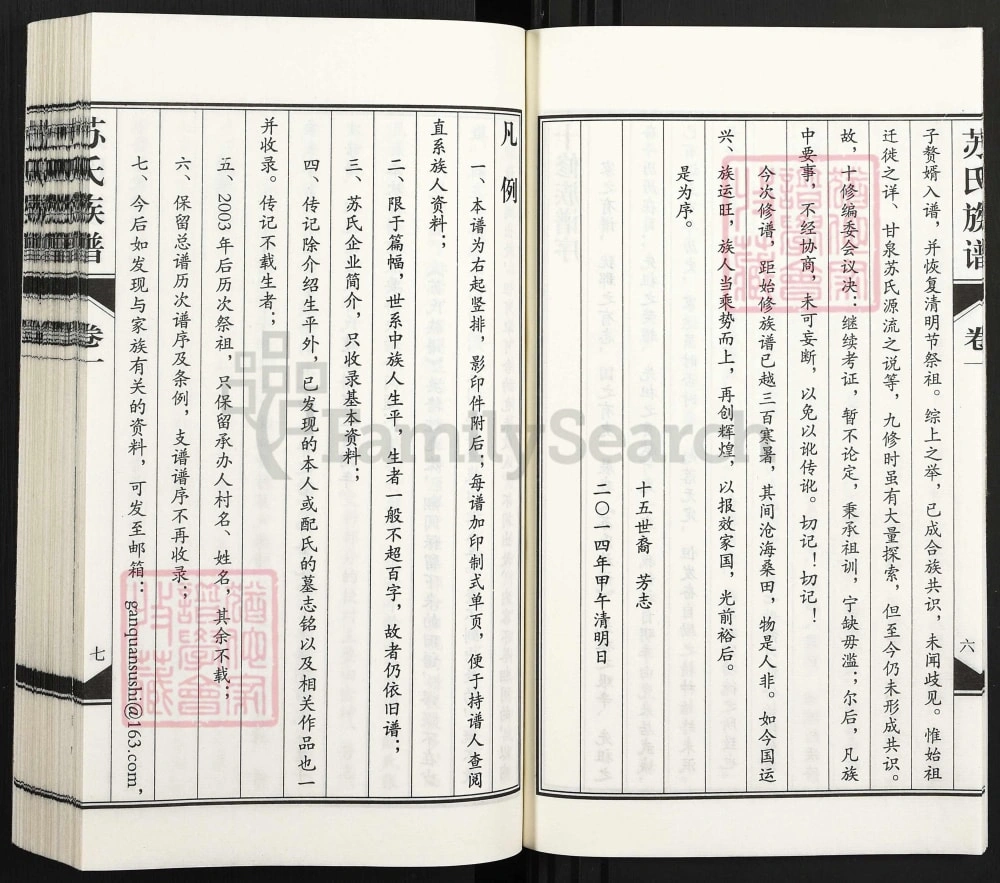 苏氏族谱 卷一 六
子赘婿入谱，并恢复清明节祭祖。综上之举，已成合族共识，未闻歧见。惟始祖
迁徙之详、甘泉苏氏源流之说等，九修时虽有大量探索，但至今仍未形成共识。
故，十修编委会议决：继续考证，暂不论定，秉承祖训，宁缺毋滥；尔后，凡族
中要事，不经协商，未可妄断，以免以讹传讹。切记！切记！
今次修谱，距始修族谱已越三百寒暑，其间沧海桑田，物是人非。如今国运
兴、族运旺，族人当乘势而上，再创辉煌，以报效家国，光前裕后。
是为序。
十五世裔 芳志
二〇一四年甲午清明日
凡例
一、本谱为右起竖排，影印件附后；每谱加印制式单页，便于持谱人查阅
直系族人资料；
二、限于篇幅，世系中族人生平，生者一般不超百字，故者仍依旧谱；
三、苏氏企业简介，只收录基本资料；
四、传记除介绍生平外，已发现的本人或配氏的墓志铭以及相关作品也一
并收录。传记不载生者；
五、2003年后历次祭祖，只保留承办人村名、姓名，其余不载；
六、保留总谱历次谱序及条例，支谱谱序不再收录；
七、今后如发现与家族有关的资料，可发至邮箱：ganquansushi@163.com，
苏氏族谱 卷一 七
FamilySearch